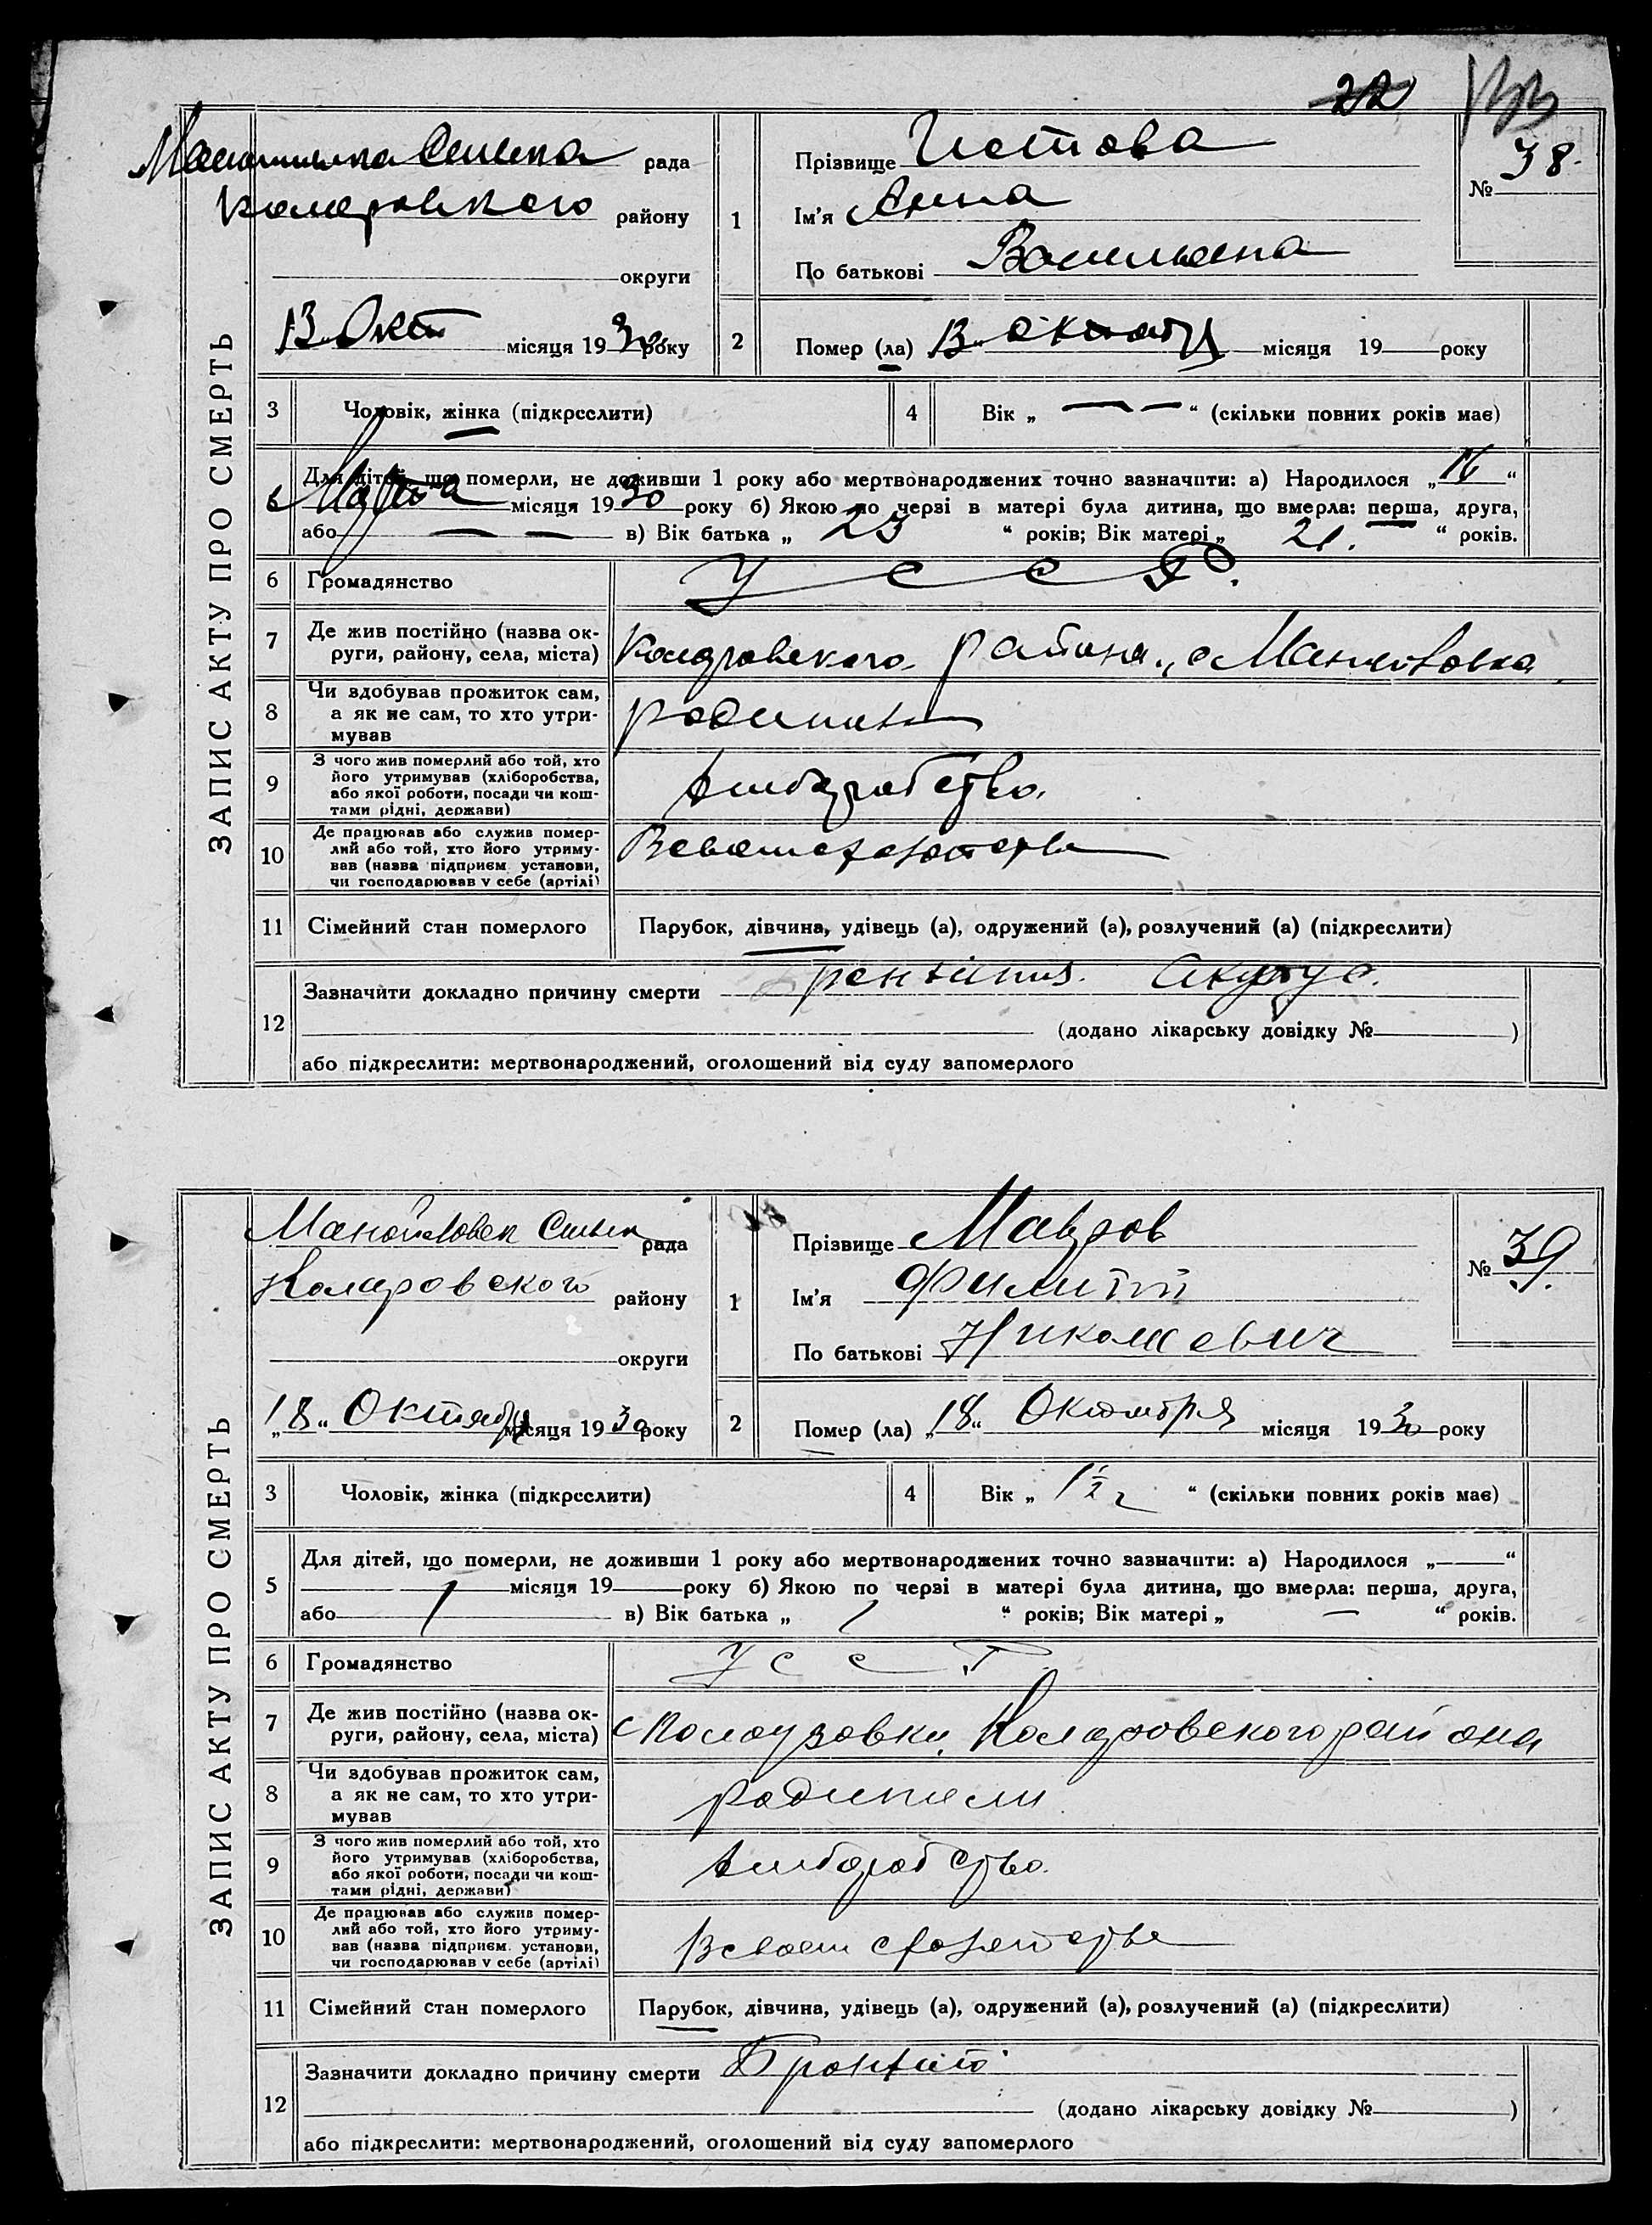 22
133
ЗАПИС АКТУ ПРО СМЕРТЬ
рада
Коларовского району
округи
13 Окт місяця 1930 року
1
Прізвище Чистова
Ім'я Анна
По батькові Васильевна
№ 38
2
Помер (ла) 13 октября місяця 19 року
3
Чоловік, жінка (підкреслити)
4
Вік „ — — “ (скільки повних років має)
5
Для дітей, що померли, не доживши 1 року або мертвонароджених точно зазначити: а) Народилося „16“
Марта місяця 1930 року б) Якою по черзі в матері була дитина, що вмерла: перша, друга,
або — — в) Вік батька „ 23 “ років; Вік матері „ 21. “ років.
6
Громадянство
У С С Р.
7
Де жив постійно (назва ок-
руги, району, села, міста)
Коларовского района, с Манойловка
8
Чи здобував прожиток сам,
а як не сам, то хто утри-
мував
родители
9
З чого жив померлий або той, хто
його утримував (хліборобства,
або якої роботи, посади чи кош-
тами рідні, держави)
хлиборобство.
10
Де працював або служив помер-
лий або той, хто його утриму-
вав (назва підприєм. установи,
чи господарював у себе (артілі)
В своем хозяйстве
11
Сімейний стан померлого
Парубок, дівчина, удівець (а), одружений (а), розлучений (а) (підкреслити)
12
Зазначити докладно причину смерти
(додано лікарську довідку № )
або підкреслити: мертвонароджений, оголошений від суду запомерлого
ЗАПИС АКТУ ПРО СМЕРТЬ
Манойловск Сельск рада
Коларовского району
округи
„18“ Октября місяця 1930 року
1
Прізвище Мавров
Ім'я Филипп
По батькові Николаевич
№ 39.
2
Помер (ла) „18“ Октября місяця 1930 року
3
Чоловік, жінка (підкреслити)
4
Вік „ 1½ г “ (скільки повних років має)
5
Для дітей, що померли, не доживши 1 року або мертвонароджених точно зазначити: а) Народилося „ “
місяця 19 року б) Якою по черзі в матері була дитина, що вмерла: перша, друга,
або в) Вік батька „ “ років; Вік матері „ — “ років.
6
Громадянство
У С С Р
7
Де жив постійно (назва ок-
руги, району, села, міста)
с Коларовского района
8
Чи здобував прожиток сам,
а як не сам, то хто утри-
мував
родители
9
З чого жив померлий або той, хто
його утримував (хліборобства,
або якої роботи, посади чи кош-
тами рідні, держави)
хлиборобство.
10
Де працював або служив помер-
лий або той, хто його утриму-
вав (назва підприєм. установи,
чи господарював у себе (артілі)
В своем хозяйстве
11
Сімейний стан померлого
Парубок, дівчина, удівець (а), одружений (а), розлучений (а) (підкреслити)
12
Зазначити докладно причину смерти Бронхит
(додано лікарську довідку № )
або підкреслити: мертвонароджений, оголошений від суду запомерлого